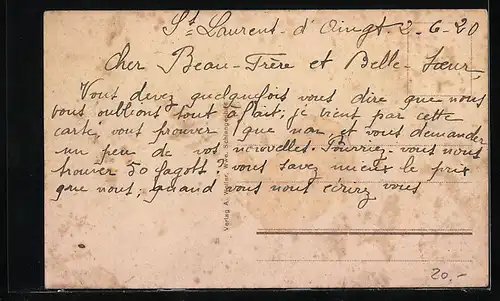 St Laurent-d'Oingt. 2-6-20
Cher Beau-Frère et Belle-Sœur,
Vous devez quelquefois vous dire que nous
vous oublions tout a fait; je vient par cette
carte, vous prouver que non, et vous demander
un peu de vos nouvelles. Pourriez-vous nous
trouver 50 fagots? vous savez mieux le prix
que nous; quand vous nous écrirez vous
Verlag A.
20.-